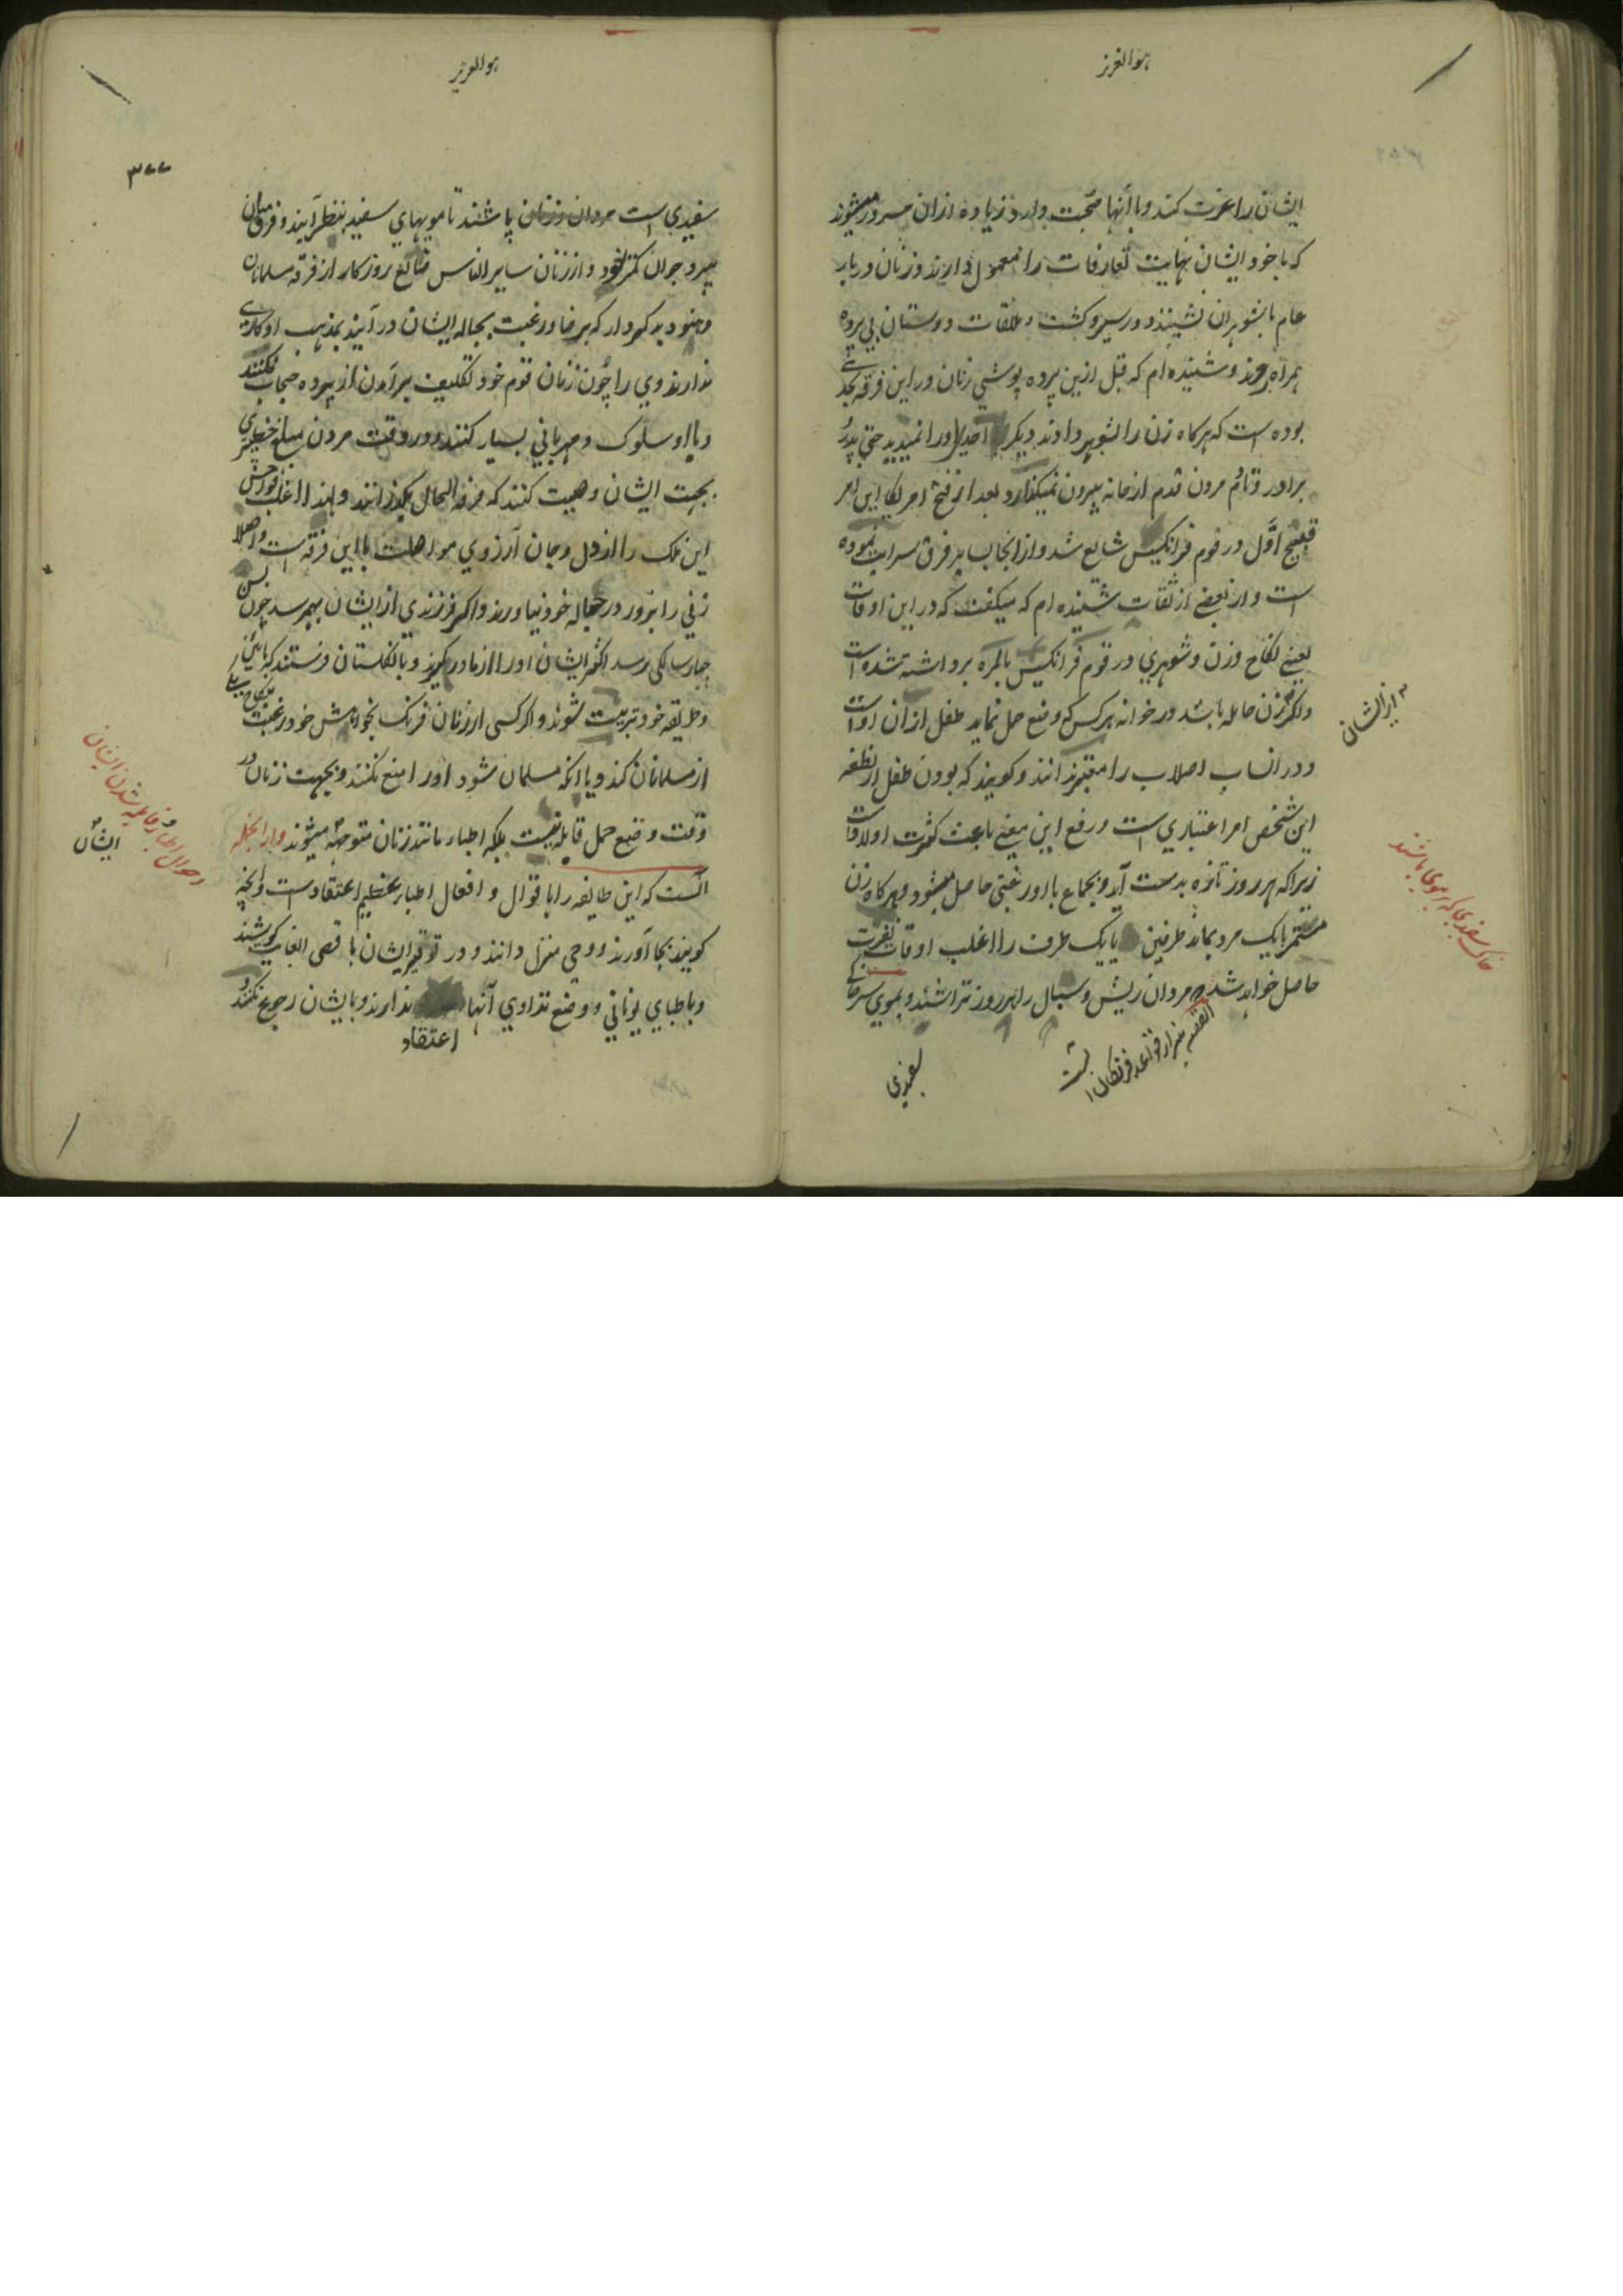 هو العزیز
ایشان را عزت کند و با آنها محبت دارد زیاده ازان مسرور میشوند
که با خود ایشان نهایت تعارفات را معمول دارند و زنان در بار
عام با شوهران نشینند و در سیر و کشت و ملاقات دوستان بی پرده
همراه روند و شنیده ام که قبل ازین پرده پوشی زنان در این فرقه بحدی
بوده است که هرکاه زن را بشوهر دادند دیکر احدی او را نمیدید حتی پدر
برادر و تا دم مردن قدم از خانه بیرون نمیکذارد و بعد از فتح امریکا این امر
قبیح اول در قوم فرانکیس شایع شد و از انجا بسایر فرق سرایت نموده
است و از بعضی از ثقات شنیده ام که میکفت که در این اوقات
یعنی نکاح و زن و شوهری در قوم فرانکیس بالمره برداشته شده است
و اکر زن حامله باشد در خوانه هرکس که وضع حمل نماید طفل ازان اوست
و در انساب اصلاب را معتبر ندانند و کویند که بودن طفل از نطفه
این شخص امر اعتباری است و رفع این معنی باعث کثرت اولاد است
زیرا که هر روز تازه بدست آید و بجماع با او رغبتی حاصل میشود و هرکاه زن
مستمر با یک مرد بماند طرفین یا یک طرف را اغلب اوقات نفرت
حاصل خواهد شد مردان ریش و سبال را هر روز تراشند و بموی سر خاکی
از ایشان
خاک سفیدی که بر موی پاشند
سفیدی
هو العزیز
۳۷۷
سفیدی است مردان و زنان پاشند تا مویهای سفید بنظر آیند و فرق میان
پیر و جوان کمتر شود و از زنان سایر الناس ضایع روزکار از فرقه مسلمانان
و هنود بد کردار که برضا و رغبت بحباله ایشان در آیند بمذهب او کاری
ندارند و وی را چون زنان قوم خود تکلیف برآمدن از پرده حجاب نکنند
و با او سلوک و مهربانی بسیار کنند و در وقت مردن مبلغ خطیری
بجهت ایشان وصیت کنند که مرفه الحال بکذرانند و لهذا اغلب
این ملک را از دل و جان آرزوی مواصلت با این فرقه است و اصلا
زنی را بزور در حباله خود نیاورند و اکر فرزندی از ایشان بهم رسد چون بسن
چهار سالکی رسد اکثر ایشان او را از مادر کیرند و بانکلستان فرستند که بائین
و طریقه خود تربیت شوند و اکر کسی از زنان فرنک بخواهش خود رغبت بنکاح یکی
از مسلمانان کند و یا انکه مسلمان شود او را منع نکنند و بجهت زنان در
وقت وضع حمل قابله نیست بلکه اطباء مانند زنان متوجه میشوند و از انجمله
انست که این طایفه را باقوال و افعال اطباء عظیم اعتقاد است و انچه
کویند بجا آورند و وحی منزل دانند و در توقیر ایشان باقصی الغایت کوشند
و باطبای یونانی و وضع تداوی آنها اعتقاد ندارند و بایشان رجوع نکنند
ایشان